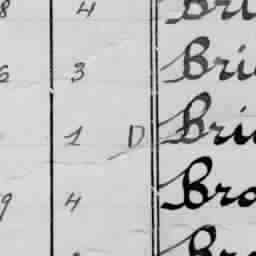 8 4 Bri
6 3 Bri
1 D Bri
9 4 Bro
Br